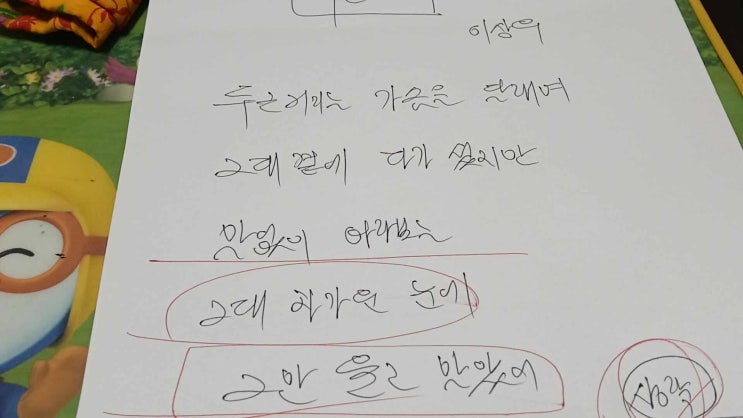 이상우
두근거리는 가슴을 달래며
그대 곁에 다가 섰지만
말없이 바라보는
그대 차가운 눈에
그만 울고 말았어